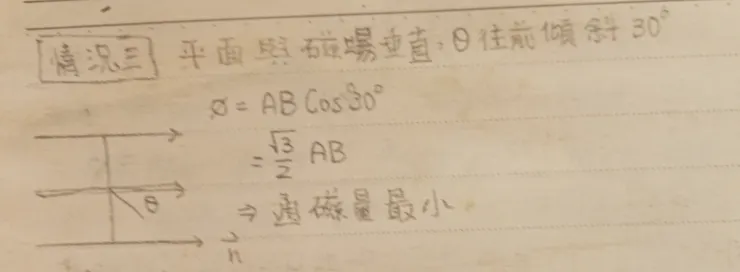 [情況三] 平面與磁場垂直,θ往前傾斜30°
Ø = AB Cos30°
= √3/2 AB
θ
⇒ 通磁量最小
n⃗